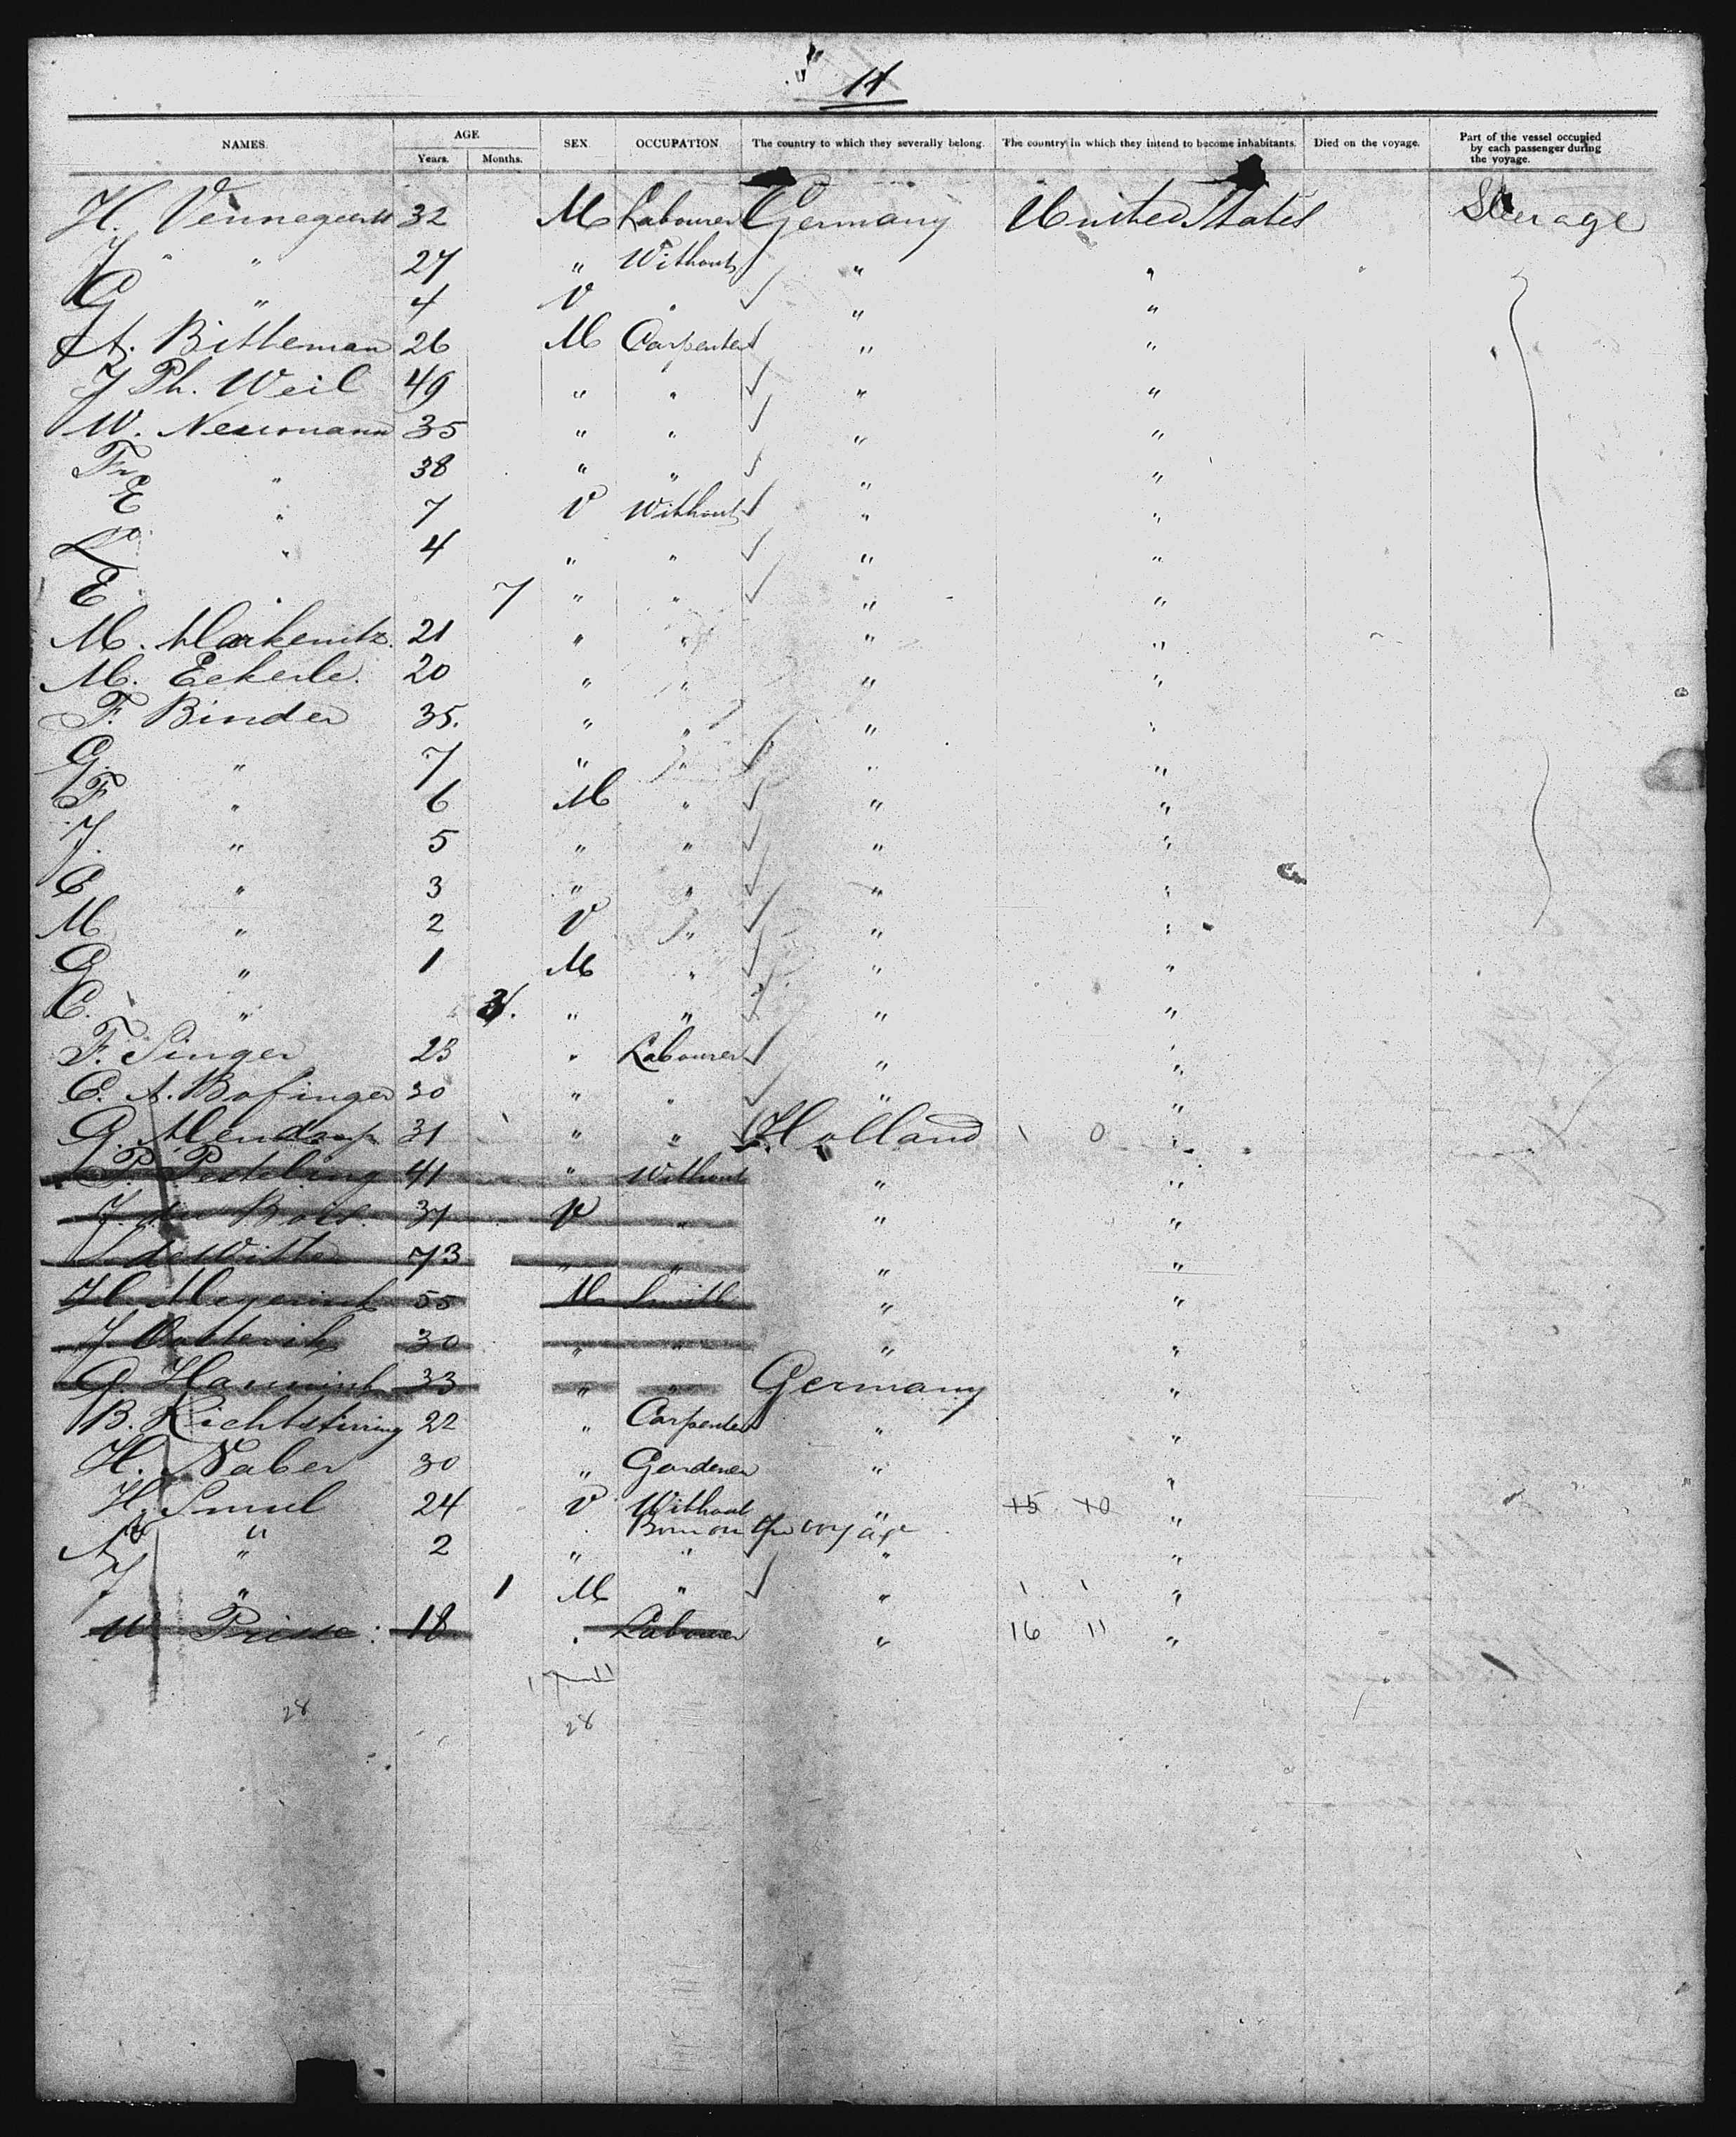 11
NAMES. AGE SEX OCCUPATION. The country to which they severally belong. The country in which they intend to become inhabitants. Died on the voyage. Part of the vessel occupied by each passenger during the voyage.
Years. Months.
H. 32 M Labourer Germany United States Steerage
J " 27 " Without " "
G " 4 V " " "
A. Bitteman 26 M Carpenter " "
J Ph. Weil 49 " " " "
W. Neumann 35 " " " "
Fr " 38 " " " "
E " 7 V Without " "
L " 4 " " " "
E " 7 " " " "
M. 21 " " " "
M. Eckerle. 20 " " " "
F. Binder 35. " " " "
G. " 7 " " " "
F " 6 M " " "
J. " 5 " " " "
C " 3 " " " "
M " 2 V " " "
G " 1 M " " "
C. " 3. " " " "
F. Singer 23 " Labourer " "
C. A. Bofinger 30 " " " "
G. 31 " " Holland 1 0 "
P. Pesteling 41 " Without " "
J. 37 V " " "
de Witte 73 " " " "
H. Meyerink 55 M Smith " "
J. 30 " " " "
G. 33 " " Germany "
B. Richtstiring 22 " Carpenter " "
H. Naber 30 " Gardener " "
H. Smul 24 V Without " 15 10 "
Born on the voyage
A " 2 " " " "
J " 1 M " " 1 1 "
W Prisse. 18 " Labourer " 16 11 "
28 28